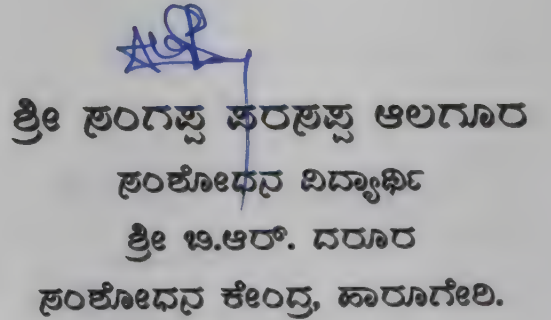 ಶ್ರೀ ಸಂಗಪ್ಪ ಪರಸಪ್ಪ ಆಲಗೂರ
ಸಂಶೋಧನ ವಿದ್ಯಾರ್ಥಿ
ಶ್ರೀ ಬಿ.ಆರ್. ದರೂರ
ಸಂಶೋಧನ ಕೇಂದ್ರ, ಹಾರೂಗೇರಿ.